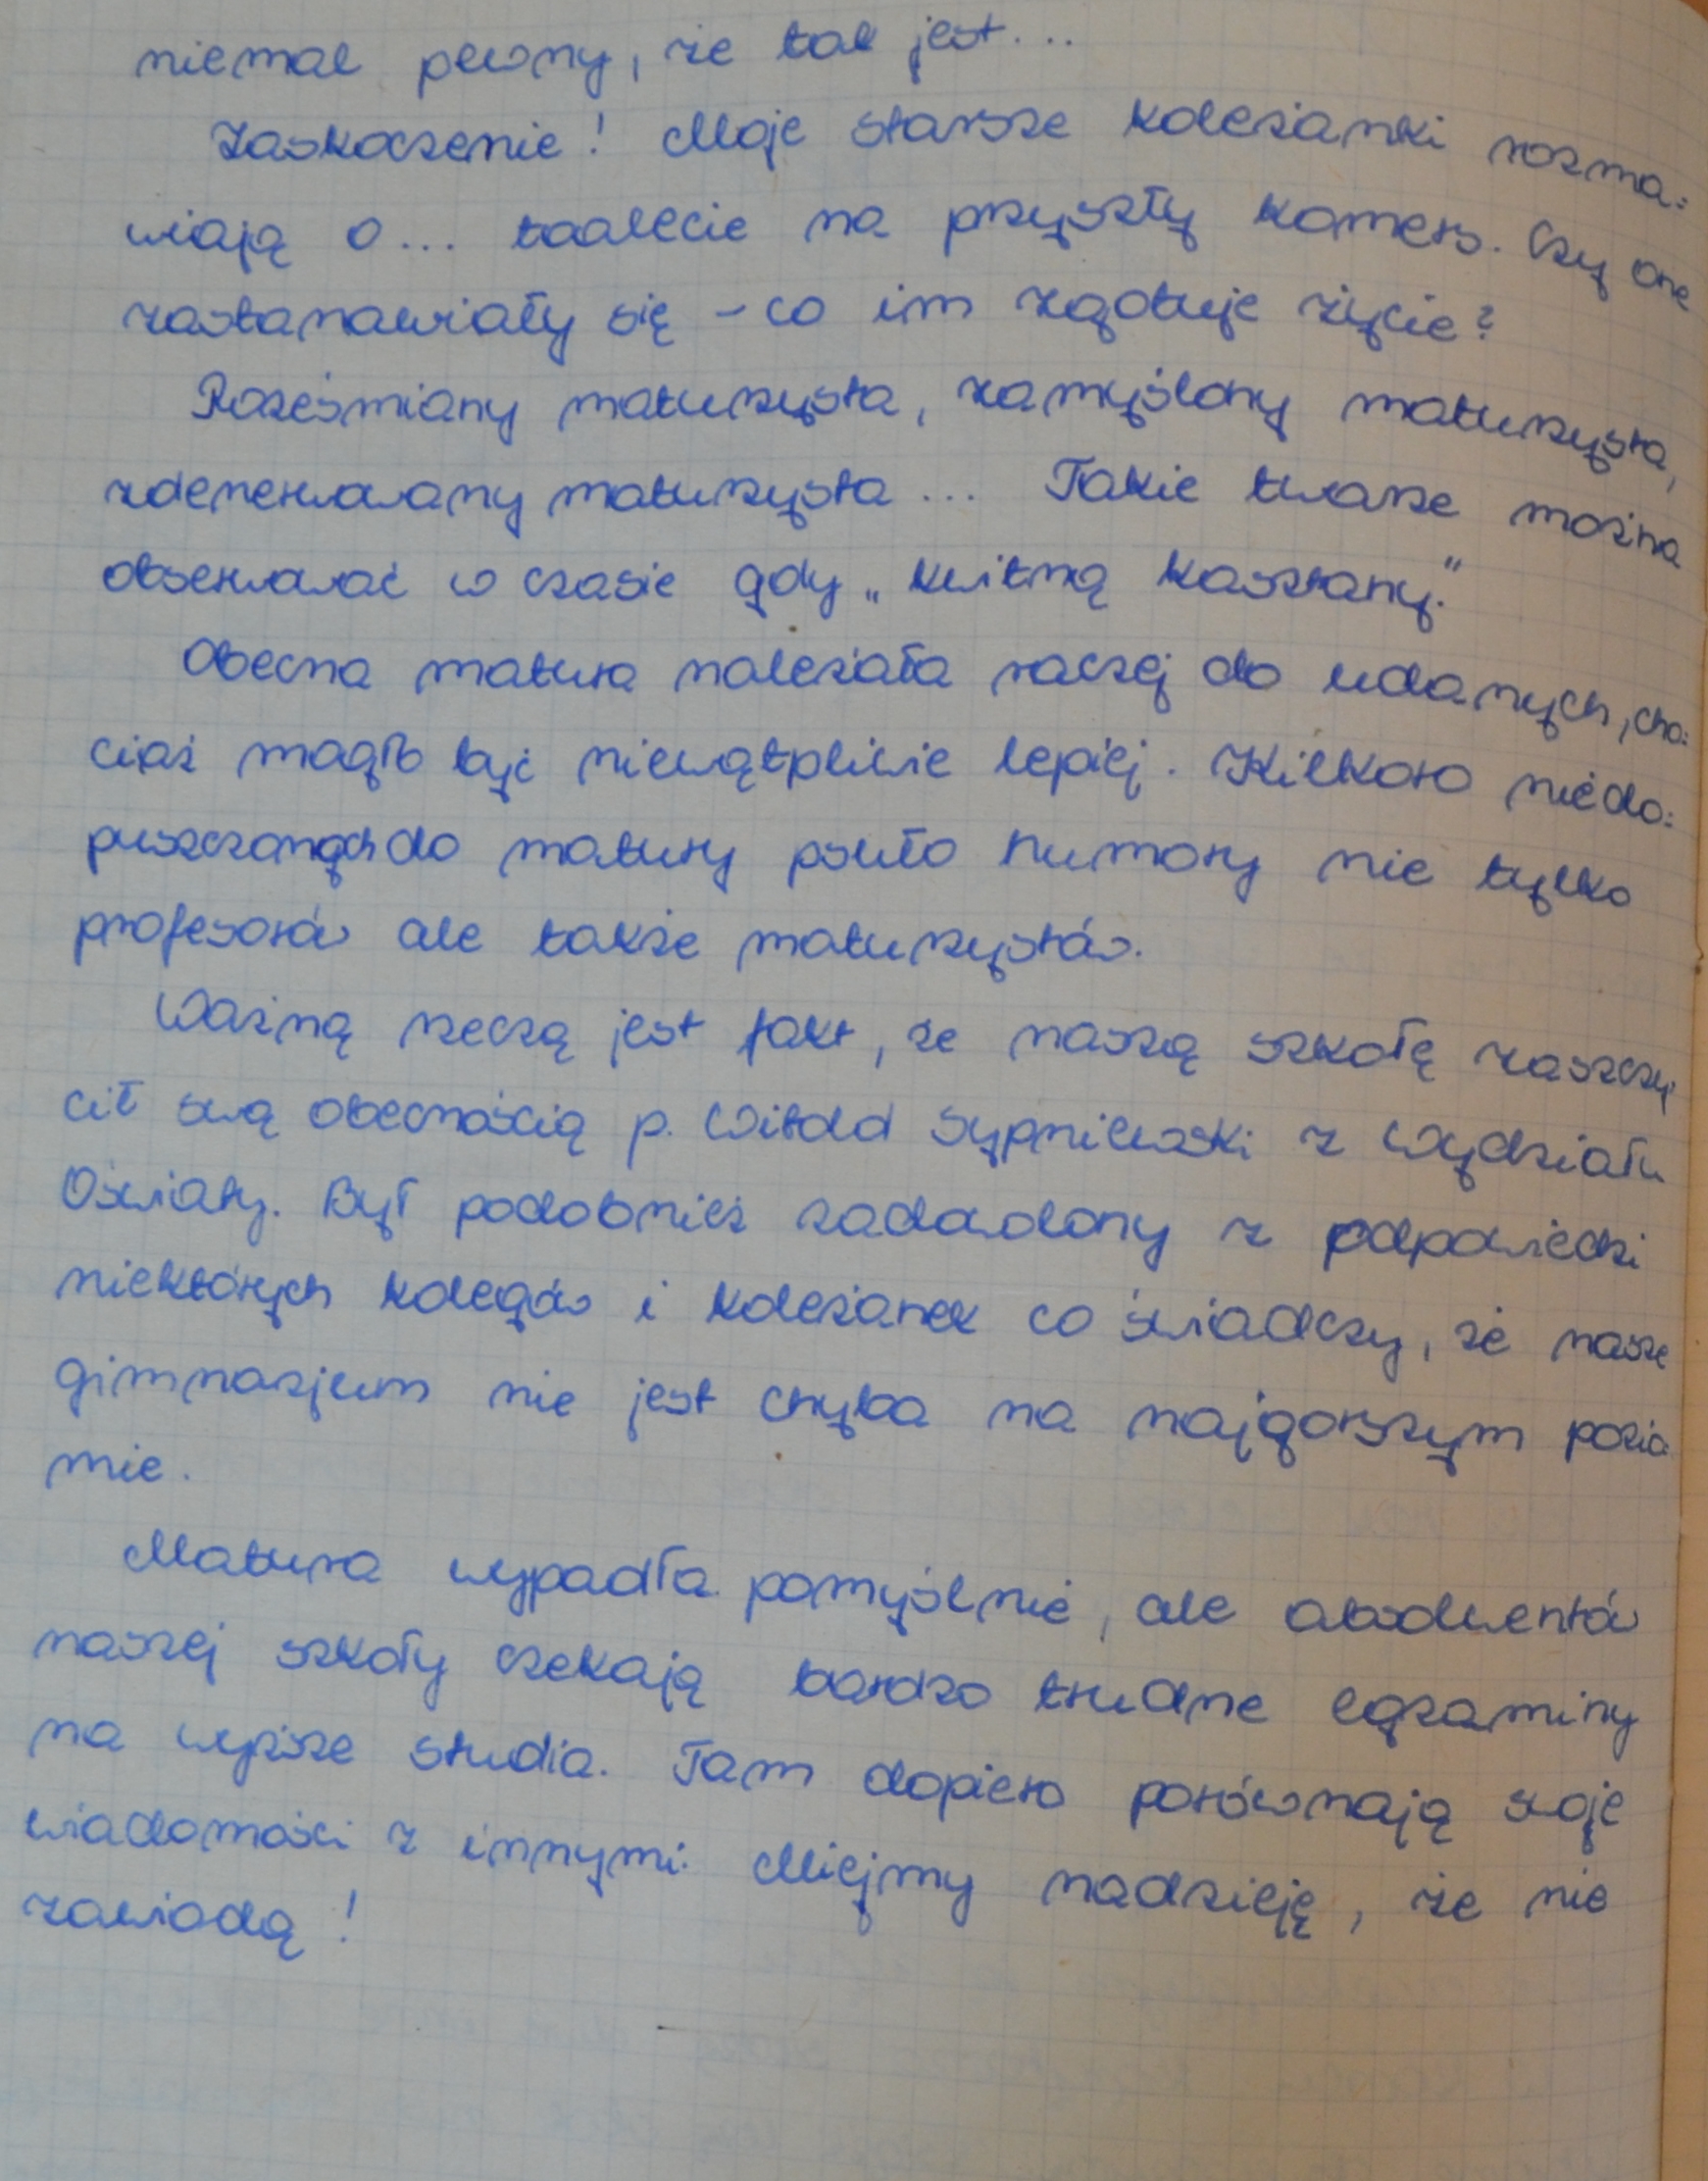 niemal pewny, że tak jest...
Zaskoczenie! Moje starsze koleżanki rozma=
wiają o... toalecie na przyszły komers. Czy one
zastanawiały się - co im zgotuje życie?
Roześmiany maturzysta, zamyślony maturzysta,
zdenerwowany maturzysta... Takie twarze można
obserwować w czasie gdy „kwitną kasztany."
Obecna matura należała raczej do udanych, cho=
ciaż mogło być niewątpliwie lepiej. Kilkoro niedo=
puszczonych do matury psuło humory nie tylko
profesorów ale także maturzystów.
Ważną rzeczą jest fakt, że naszą szkołę zaszczy=
cił swą obecnością p. Witold Sypniewski z Wydziału
Oświaty. Był podobnież zadowolony z odpowiedzi
niektórych kolegów i koleżanek co świadczy, że nasze
gimnazjum nie jest chyba na najgorszym pozio=
mie.
Matura wypadła pomyślnie, ale absolwentów
naszej szkoły czekają bardzo trudne egzaminy
na wyższe studia. Tam dopiero porównają swoje
wiadomości z innymi. Miejmy nadzieję, że nie
zawiodą!